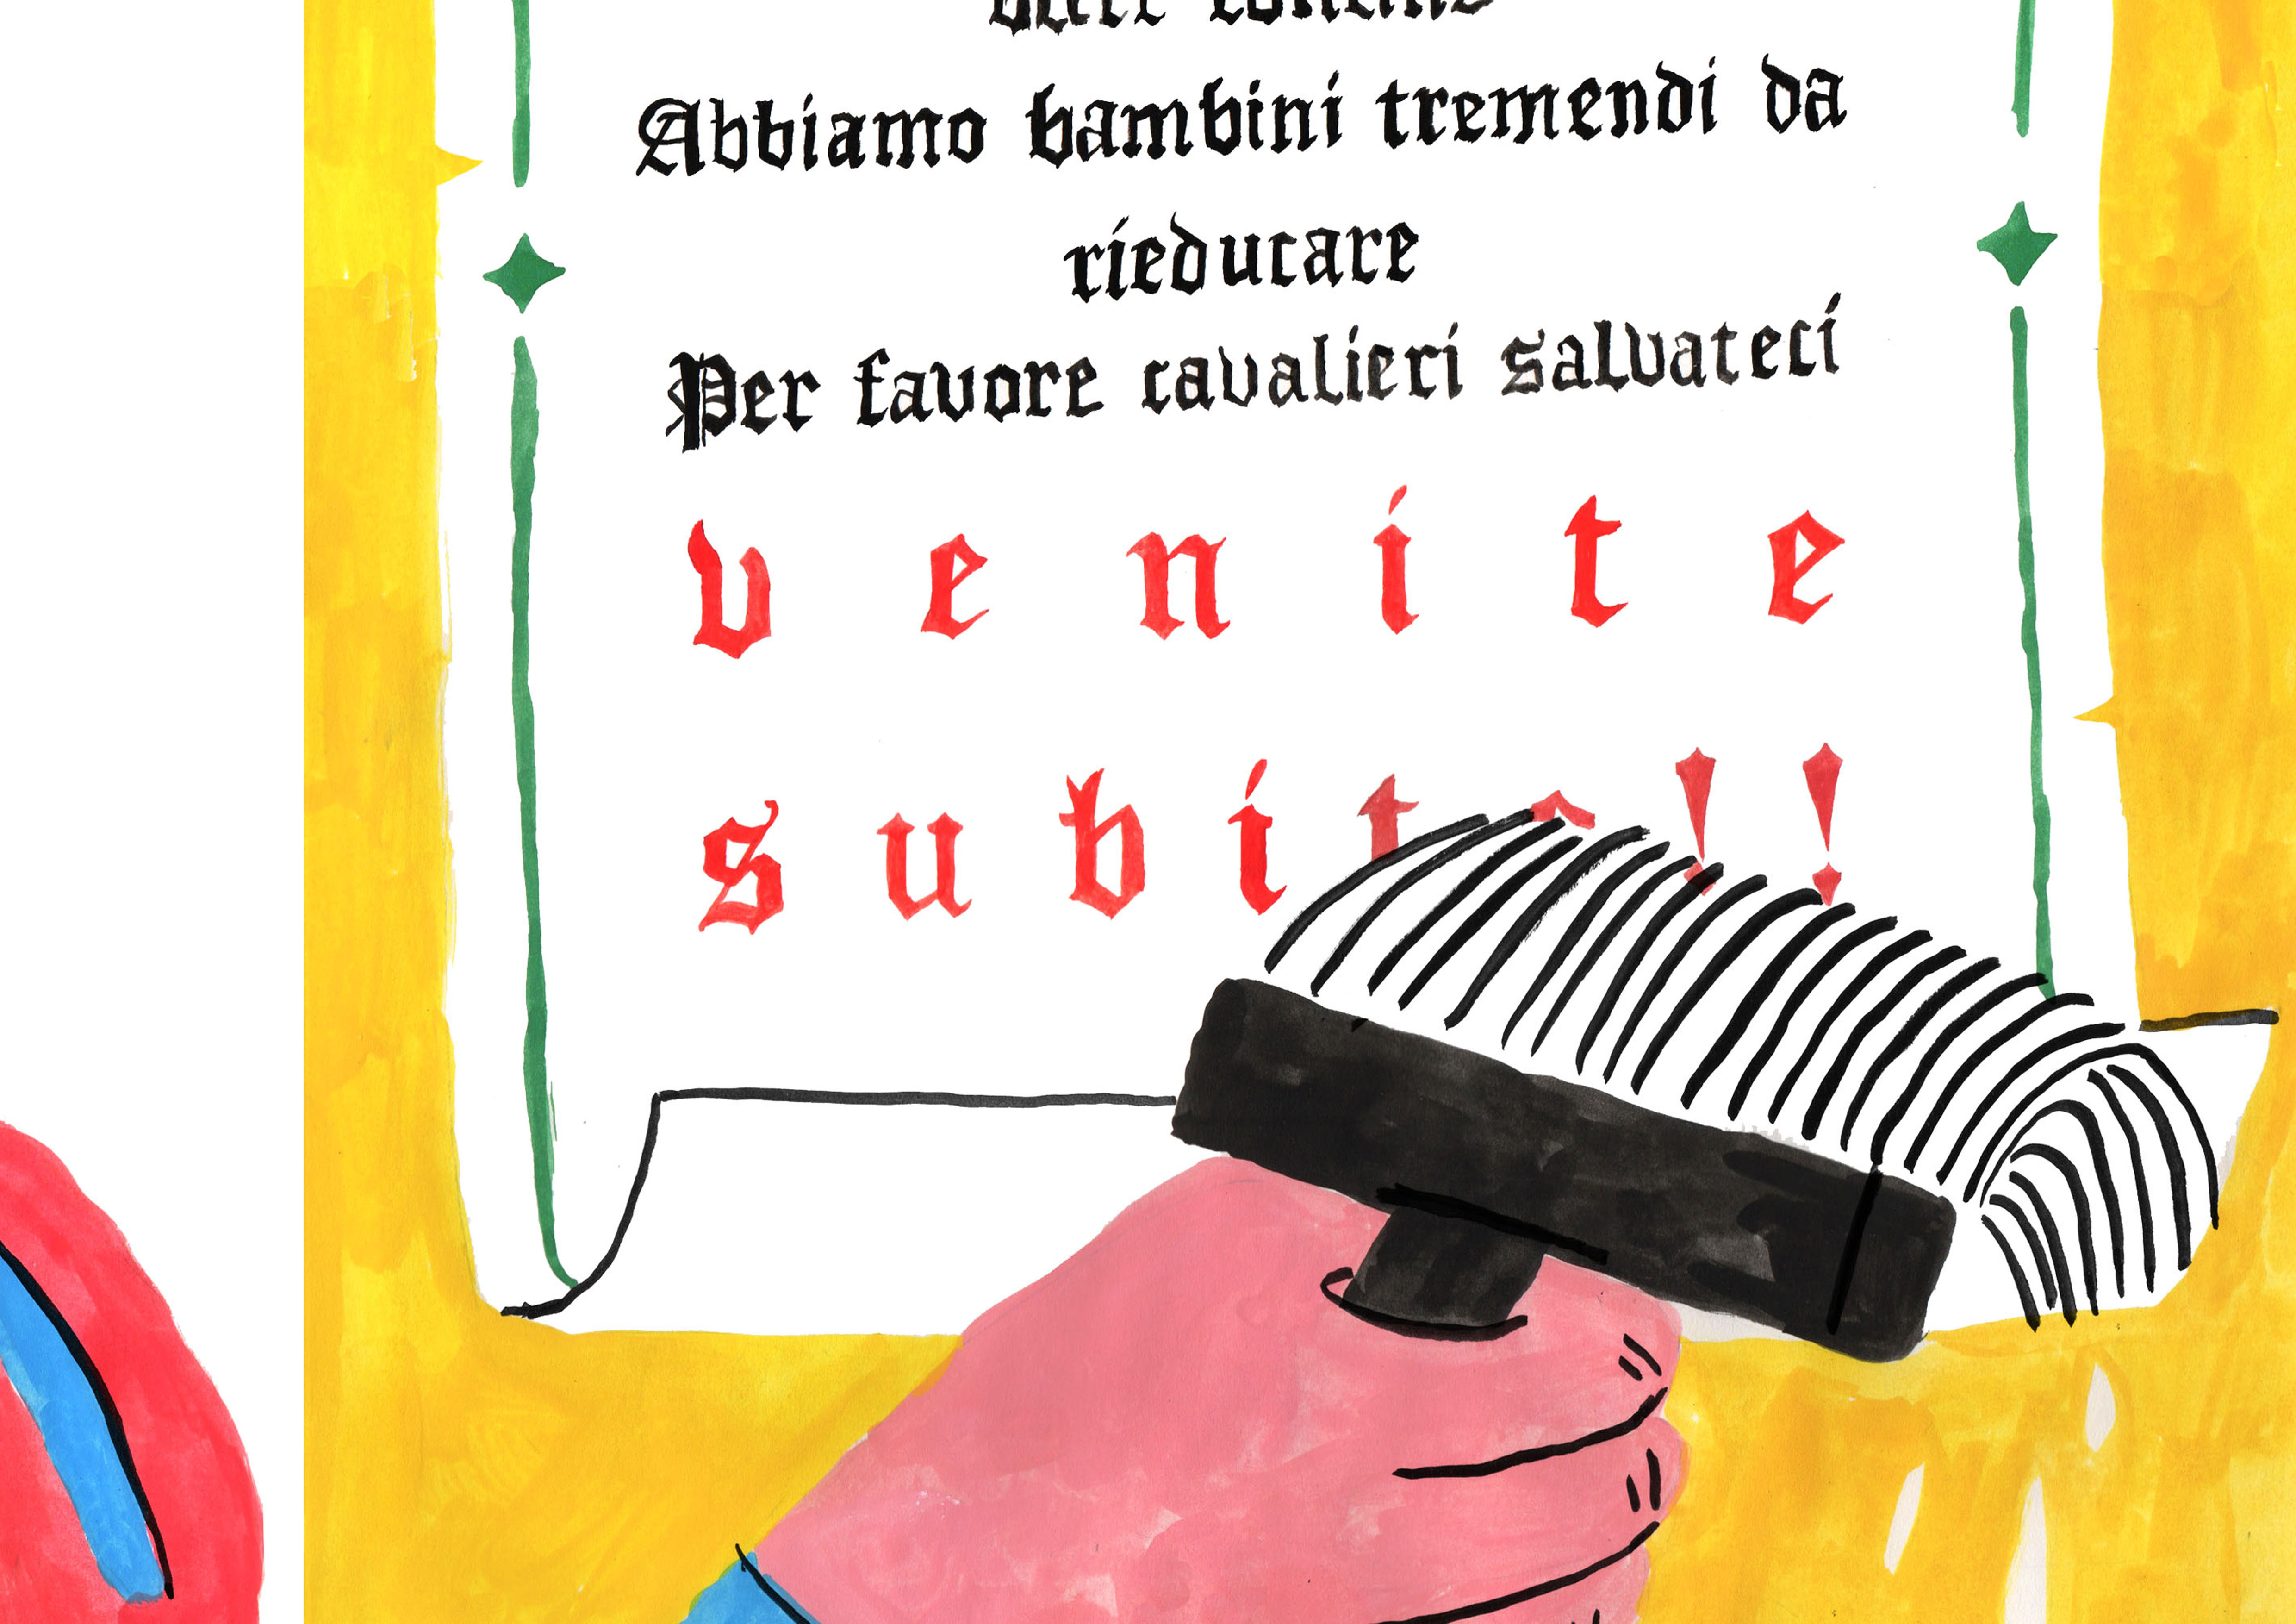 Abbiamo bambini tremendi da
rieducare
Per favore cavalieri salvateci
venite
subito!!